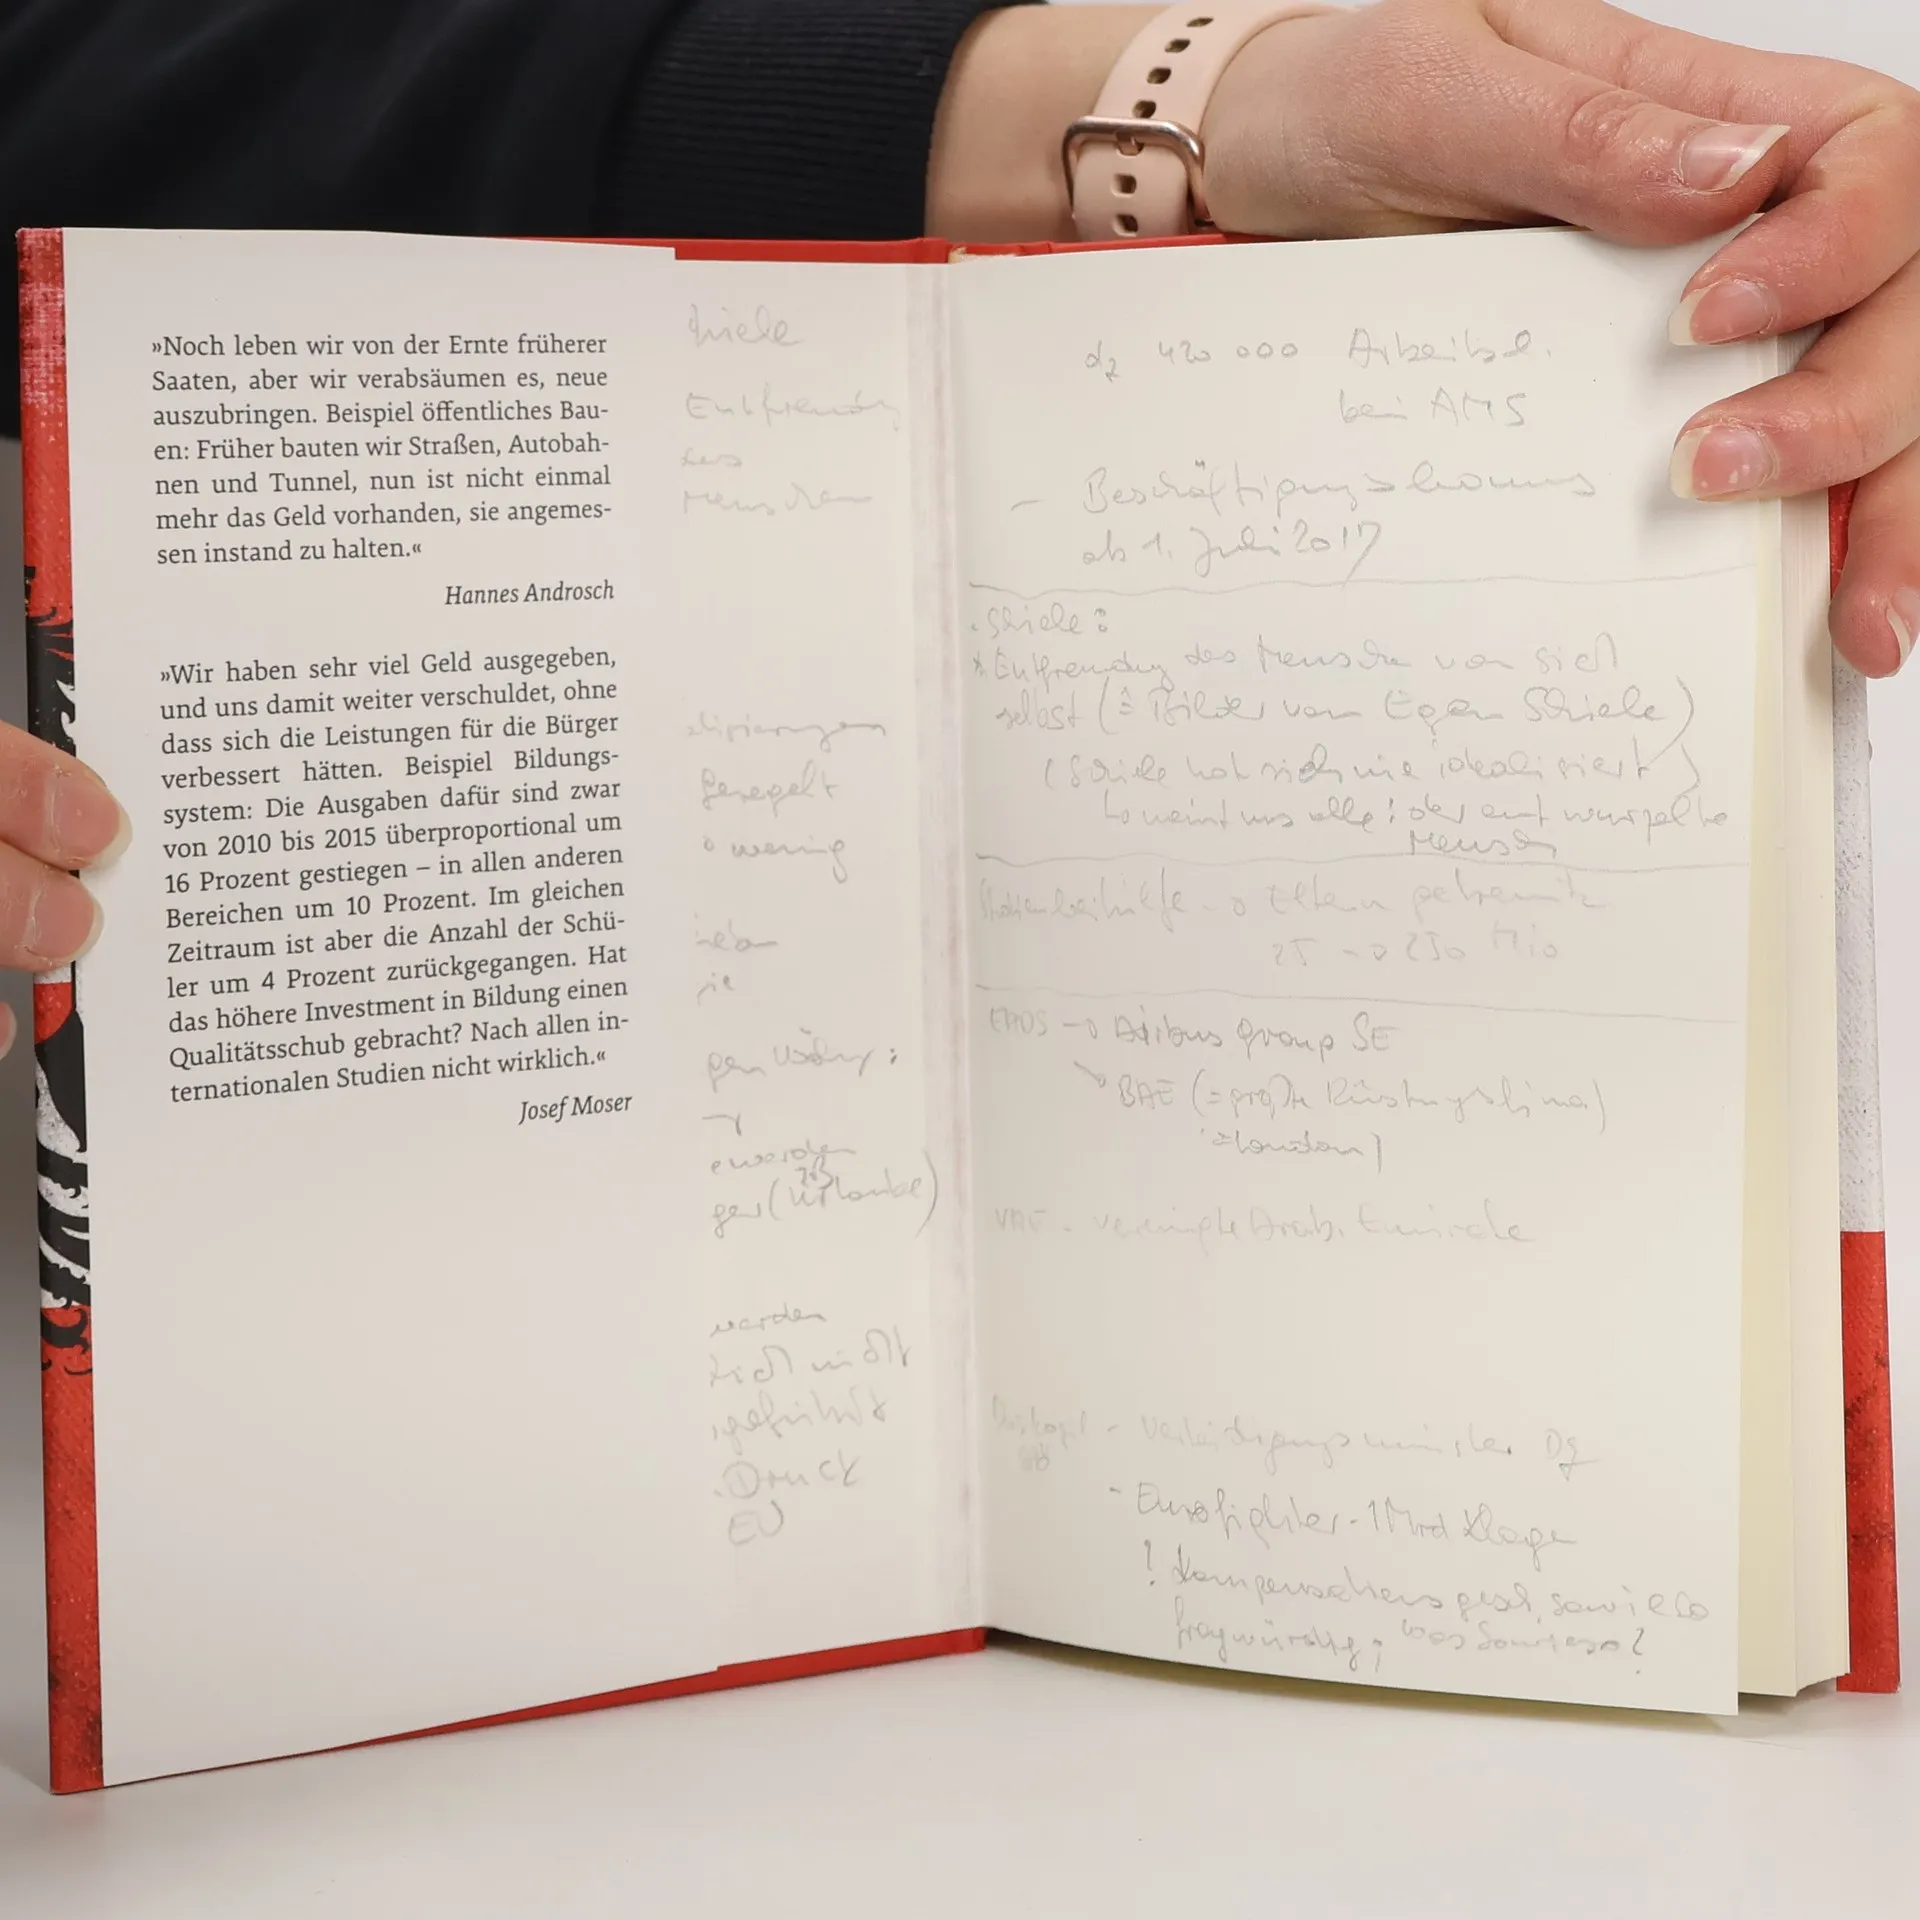 »Noch leben wir von der Ernte früherer
Saaten, aber wir verabsäumen es, neue
auszubringen. Beispiel öffentliches Bau-
en: Früher bauten wir Straßen, Autobah-
nen und Tunnel, nun ist nicht einmal
mehr das Geld vorhanden, sie angemes-
sen instand zu halten.«
Hannes Androsch
»Wir haben sehr viel Geld ausgegeben,
und uns damit weiter verschuldet, ohne
dass sich die Leistungen für die Bürger
verbessert hätten. Beispiel Bildungs-
system: Die Ausgaben dafür sind zwar
von 2010 bis 2015 überproportional um
16 Prozent gestiegen – in allen anderen
Bereichen um 10 Prozent. Im gleichen
Zeitraum ist aber die Anzahl der Schü-
ler um 4 Prozent zurückgegangen. Hat
das höhere Investment in Bildung einen
Qualitätsschub gebracht? Nach allen in-
ternationalen Studien nicht wirklich.«
Josef Moser
Entfremdg
des
Menschen
geregelt
wenig
werden
nicht
Druck
EU
dz 420 000 Arbeitsl.
bei AMS
– Beschäftigungsbonus
ab 1. Juli 2017
Schiele:
* Entfremdung des Menschen von sich
selbst (≙ Bilder von Egon Schiele)
(Schiele hat sich nie idealisiert)
meint uns alle: der entwurzelte
Mensch
Studienbeihilfe → Eltern getrennt
25 → 250 Mio
EADS → Airbus group SE
BAE (= größte Rüstungsfirma)
= London)
VAE - vereinigte Arab. Emirate
Doskozil - Verteidigungsminister
- Eurofighter - 1 Mrd Klage
! Kompensationsgesch. sowieso
fragwürdig; was sowieso?